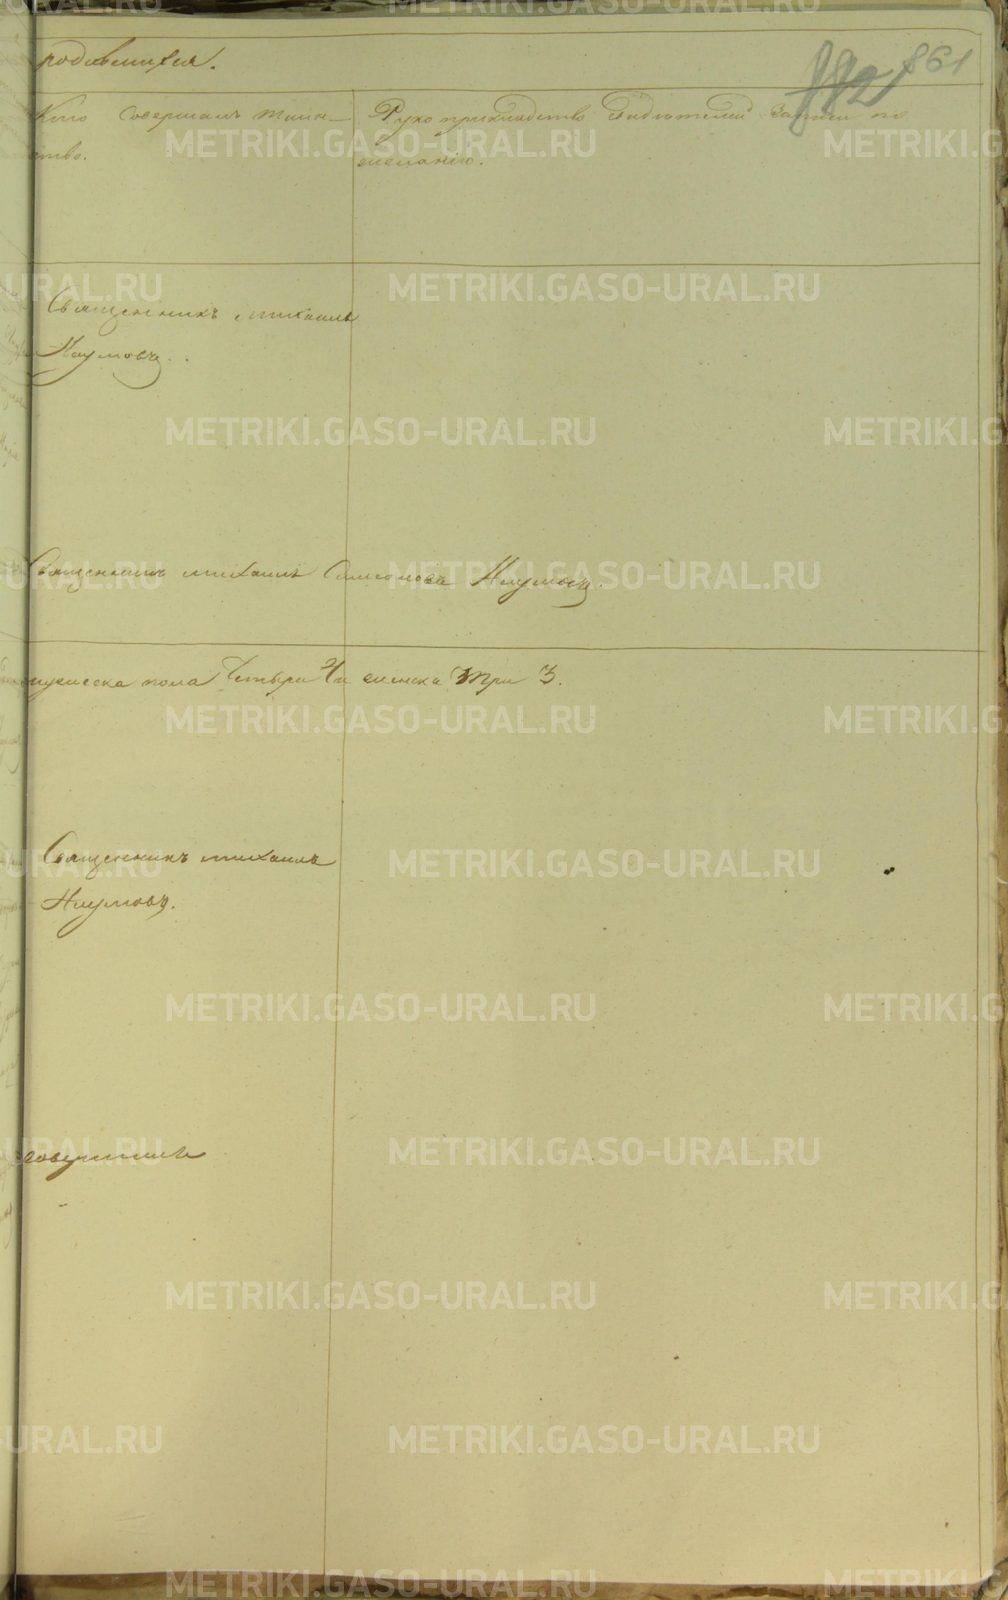 родившихся.
861
882
Кто совершалъ таин-
ство.
Рукоприкладство свидѣтелей записи по
желанію.
Священникъ Михаилъ
Наумовъ.
Священникъ Михаилъ Самсоновъ Наумовъ.
мужеска пола Четыре 4 и женска Три 3.
Священникъ Михаилъ
Наумовъ.
совершилъ
METRIKI.GASO-URAL.RU